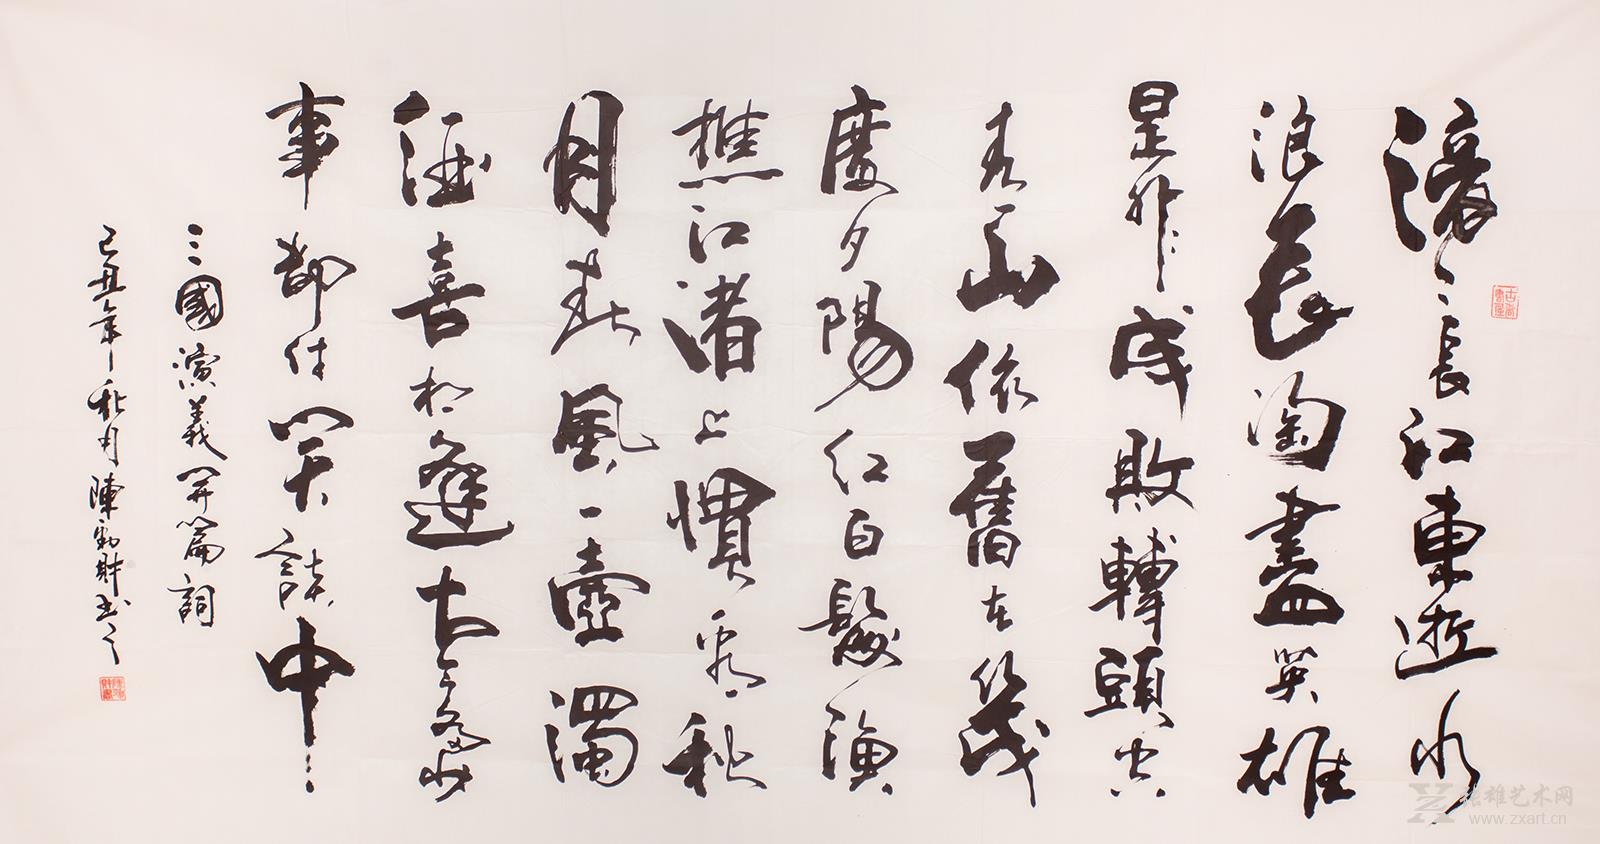 滚々長江東逝水
浪花淘盡英雄
是非成敗轉頭空
青山依舊在幾
度夕陽紅白髮漁
樵江渚上慣看秋
月春風一壺濁
酒喜相逢古今多少
事都付笑談中
三國演義開篇詞
己丑年秋月陳財书
张雄艺术网
www.zxart.cn